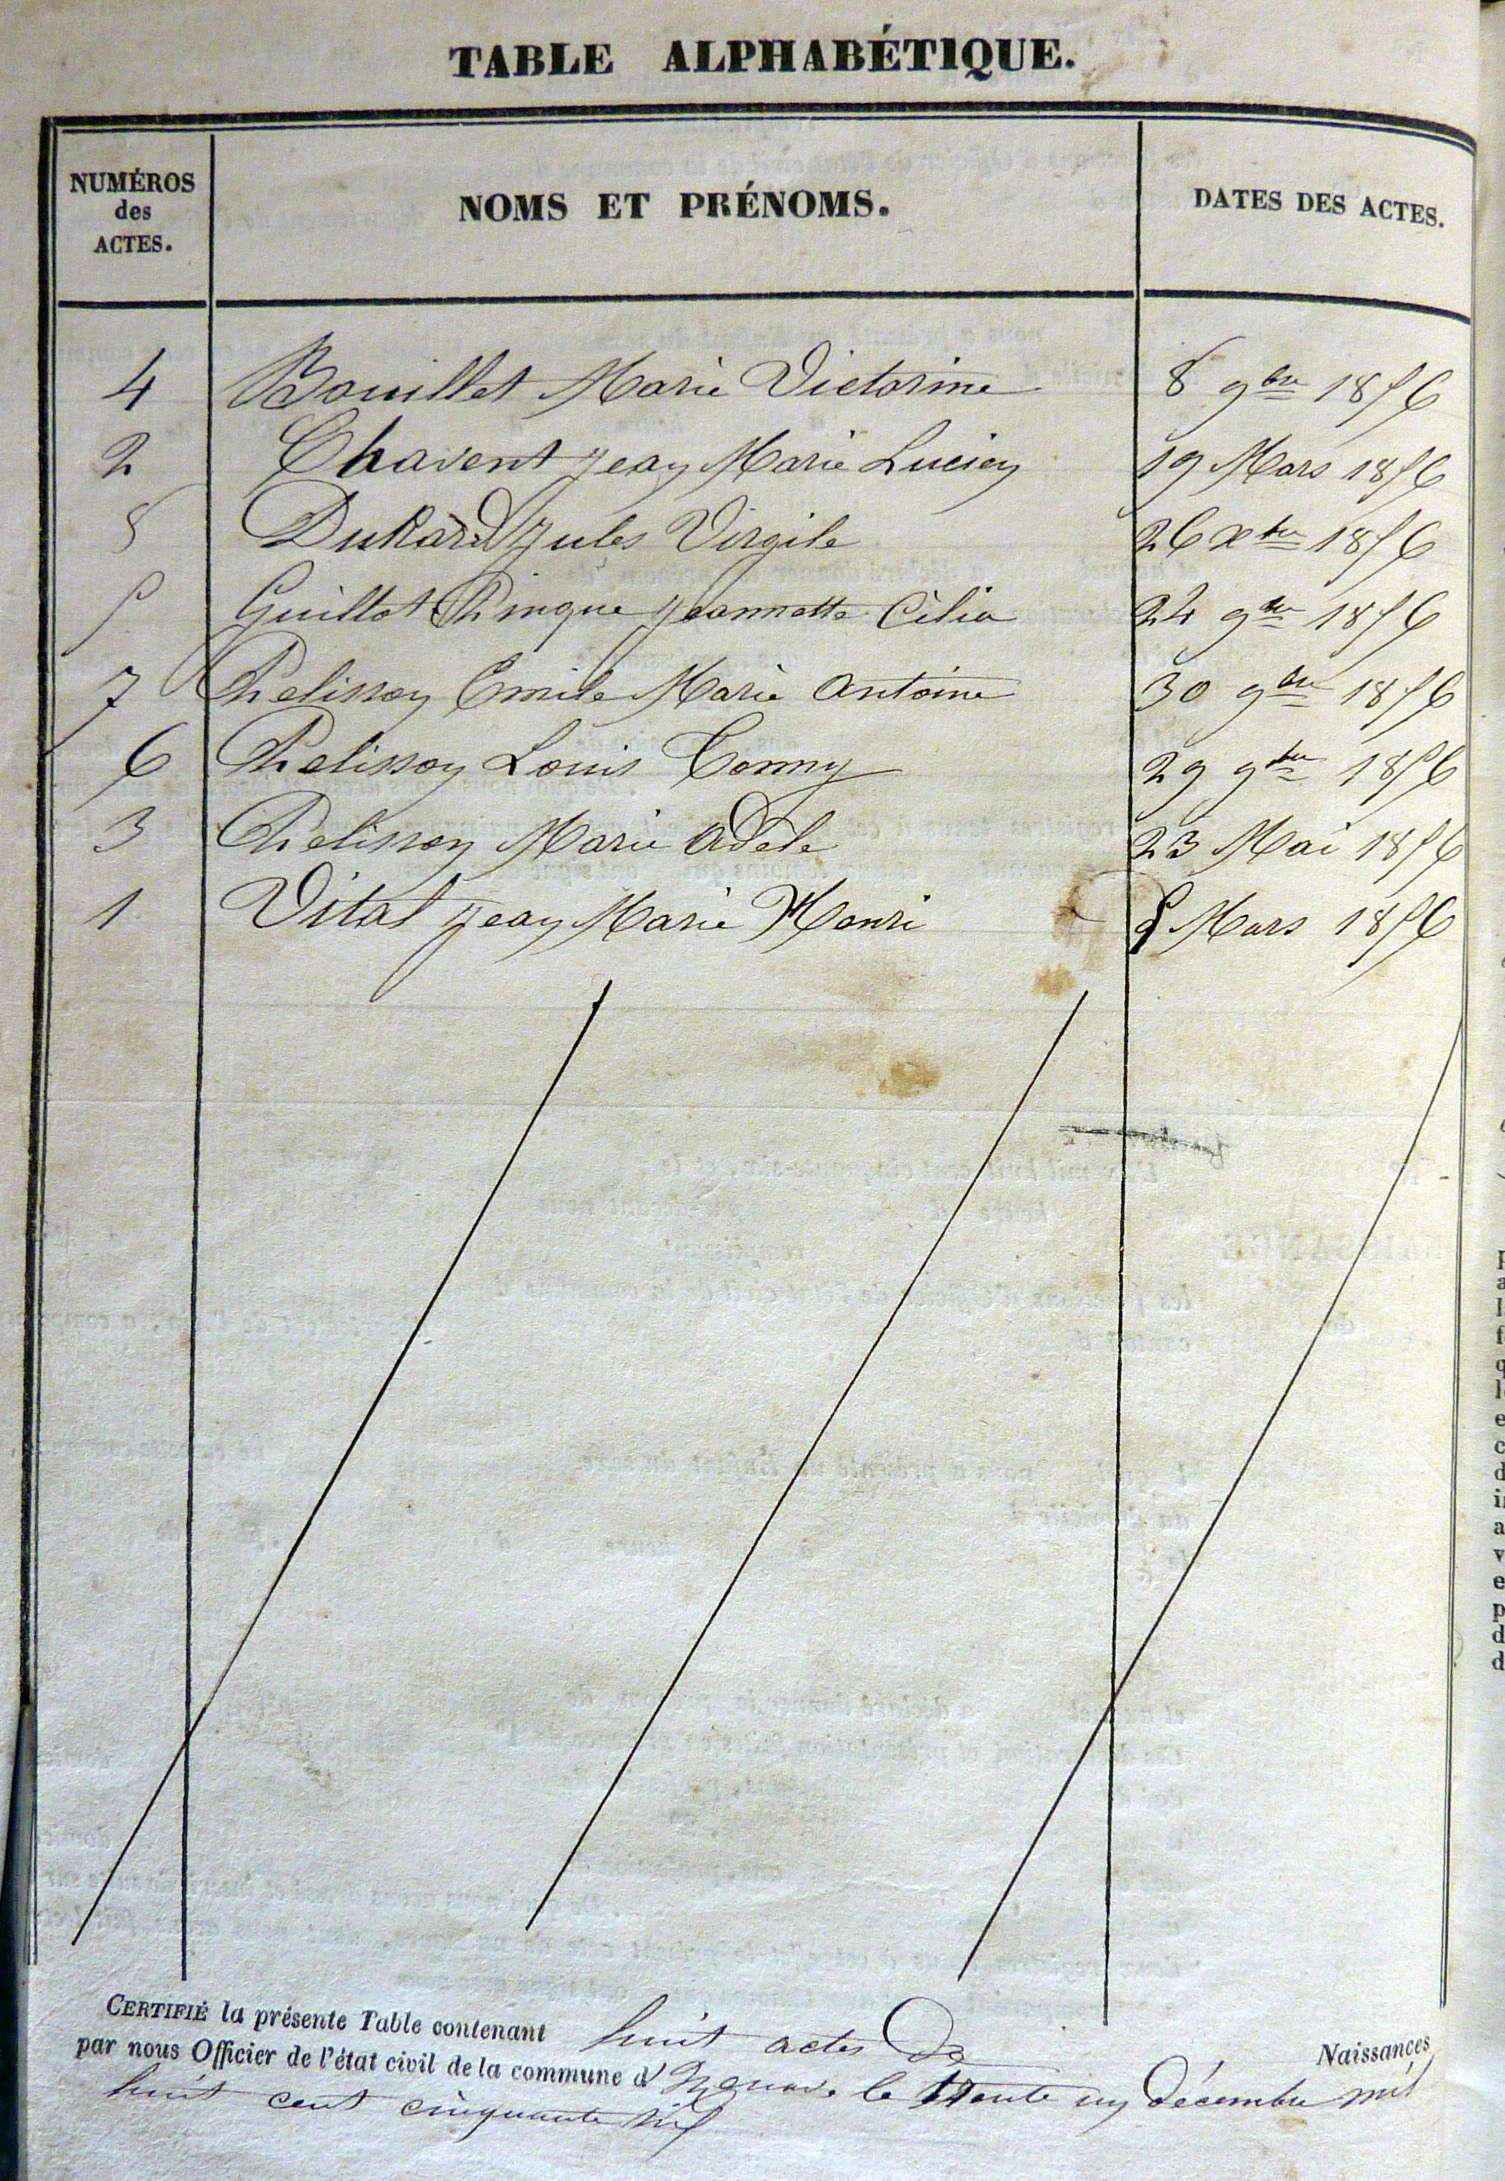 TABLE ALPHABÉTIQUE.
NUMÉROS
des
ACTES.
NOMS ET PRÉNOMS.
DATES DES ACTES.
4 Bouillet Marie Victorine 8 9bre 1856
2 Chavent Jean Marie Lucien 19 Mars 1856
8 Jules Virgile 26 Xbre 1856
5 Guillot Jeannette Célia 24 9bre 1856
7 Pelisson Emile Marie Antoine 30 9bre 1856
6 Pelisson Louis 29 9bre 1856
3 Pelisson Marie Adèle 23 Mai 1856
1 Vital Jean Marie Henri 5 Mars 1856
CERTIFIÉ la présente Table contenant huit actes de Naissances
par nous Officier de l'état civil de la commune d' le trente un décembre mil
huit cent cinquante six